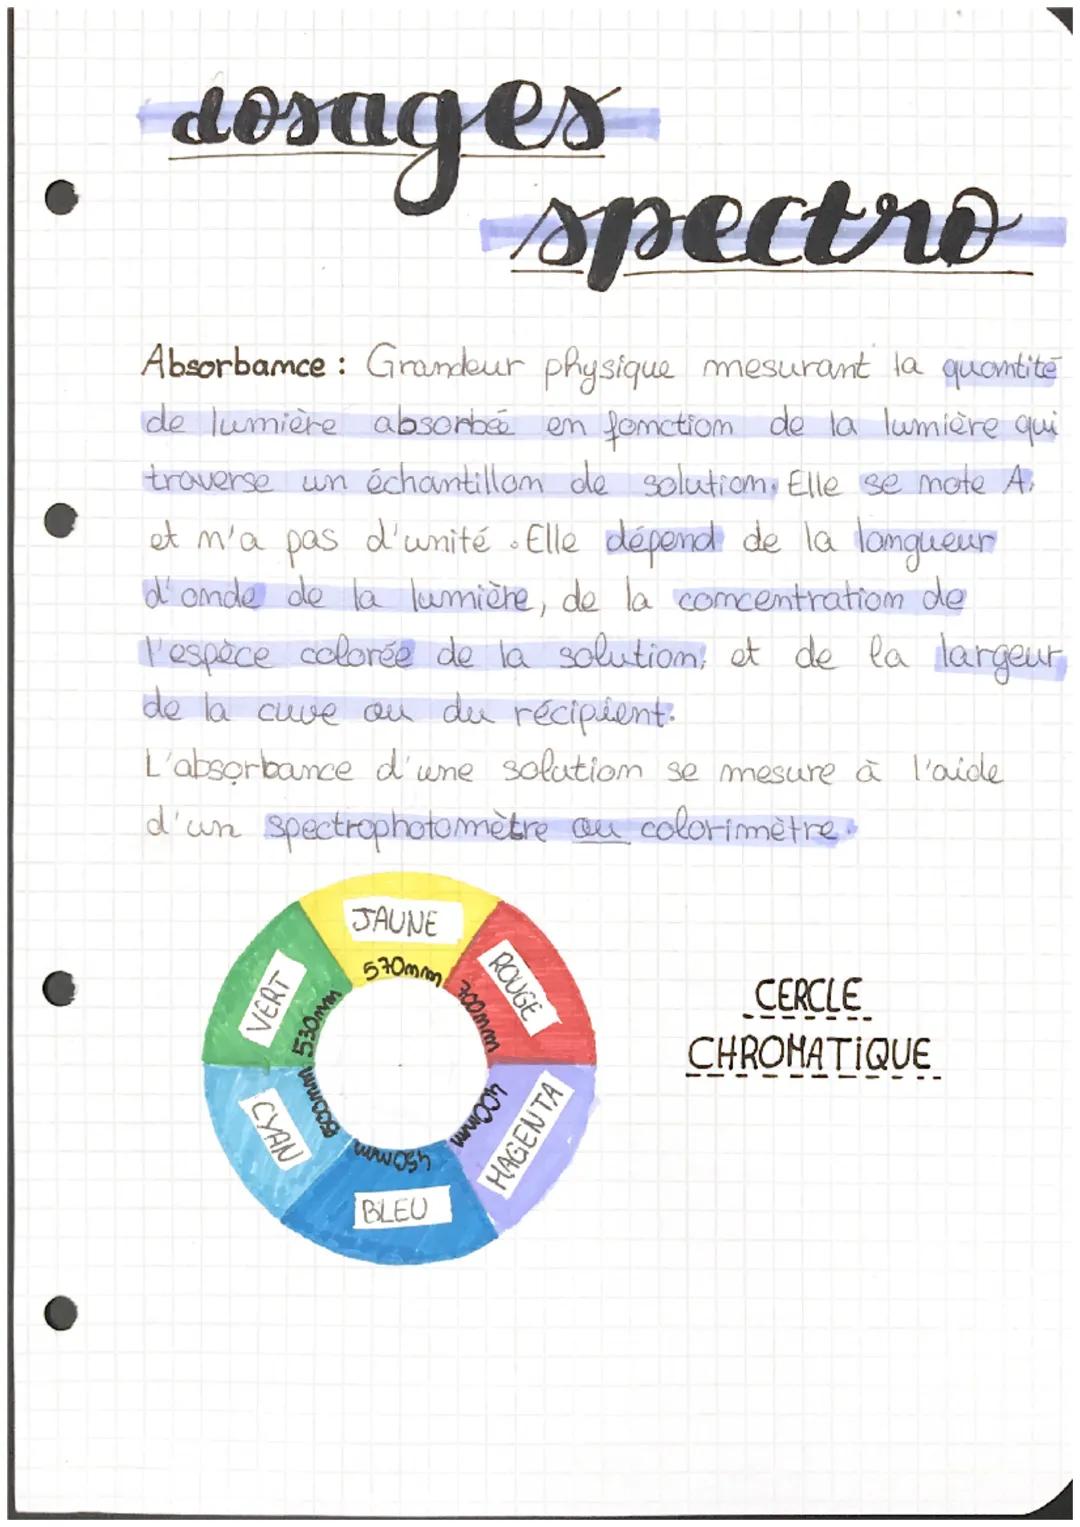 dosages
spectro
Absorbance : Grandeur physique mesurant la quantité
de lumière absorbée en fonction de la lumière qui
traverse un échantillon de solution. Elle se note A.
et n'a pas d'unité. Elle dépend de la longueur
d'onde de la lumière, de la concentration de
l'espèce colorée de la solution, et de la largeur
de la cuve ou du récipient.
L'absorbance d'une solution se mesure à l'aide
d'un spectrophotomètre ou colorimètre.
JAUNE
570nm
ROUGE
700nm
VERT
530nm
CERCLE
CHROMATIQUE
CYAN
500nm
MAGENTA
400nm
450nm
BLEU